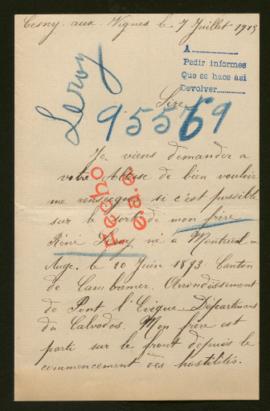 Cesny-aux-Vignes le 7 Juillet 1915
A
Pedir informes
Que se hace asi
Devolver
Leroy
95569
Sire
Je viens demander a
votre Altesse de bien vouloir
me renseigner si c'est possible
sur le sort de mon frère
Réné Leroy né a Montreuil en
Auge, le 20 Juin 1893. Canton
de Cambremer. Arrondissement
de Pont l'Evêque Département
du Calvados. Mon frère est
partie sur le front depuis le
commencement des hostilités.
Hecho